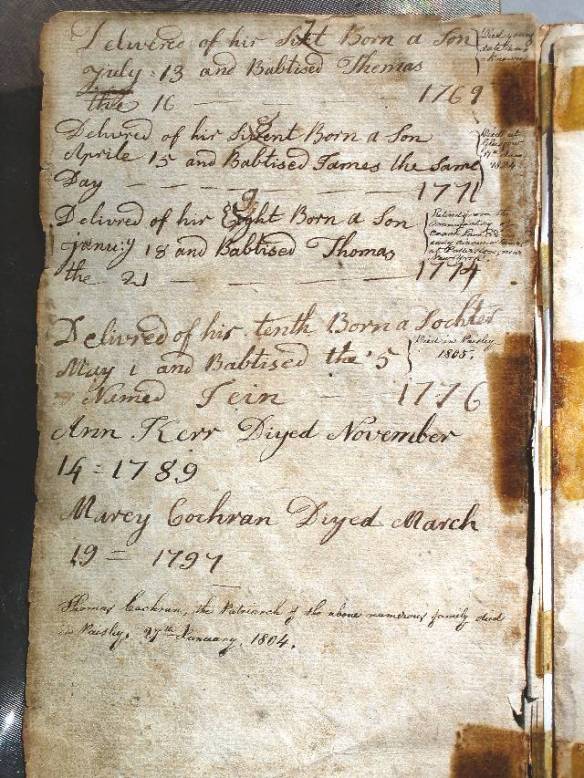 Delivred of his Sixt Born a Son
7
July 13 and Babtised Thomas
the 16 — 1769
Died young
date
known
Delivred of his Sivent Born a Son
8
Aprile 15 and Babtised James the Same
Day — — — 1771
Died at
Glasgow
1824.
Delivred of his Eight Born a Son
9
Janu:y 18 and Babtised Thomas
the 21 — — — 1774
at Paterson, near
New York.
Delivred of his tenth Born a Dochter
May 1 and Babtised the 5
Named Jein — 1776
Died in Paisley
1805.
Ann Kerr Diyed November
14 = 1789
Marey Cochran Diyed March
19 = 1797
Thomas Cochran, the Patriarch of the above numerous family died
in Paisley, 27th January, 1804.